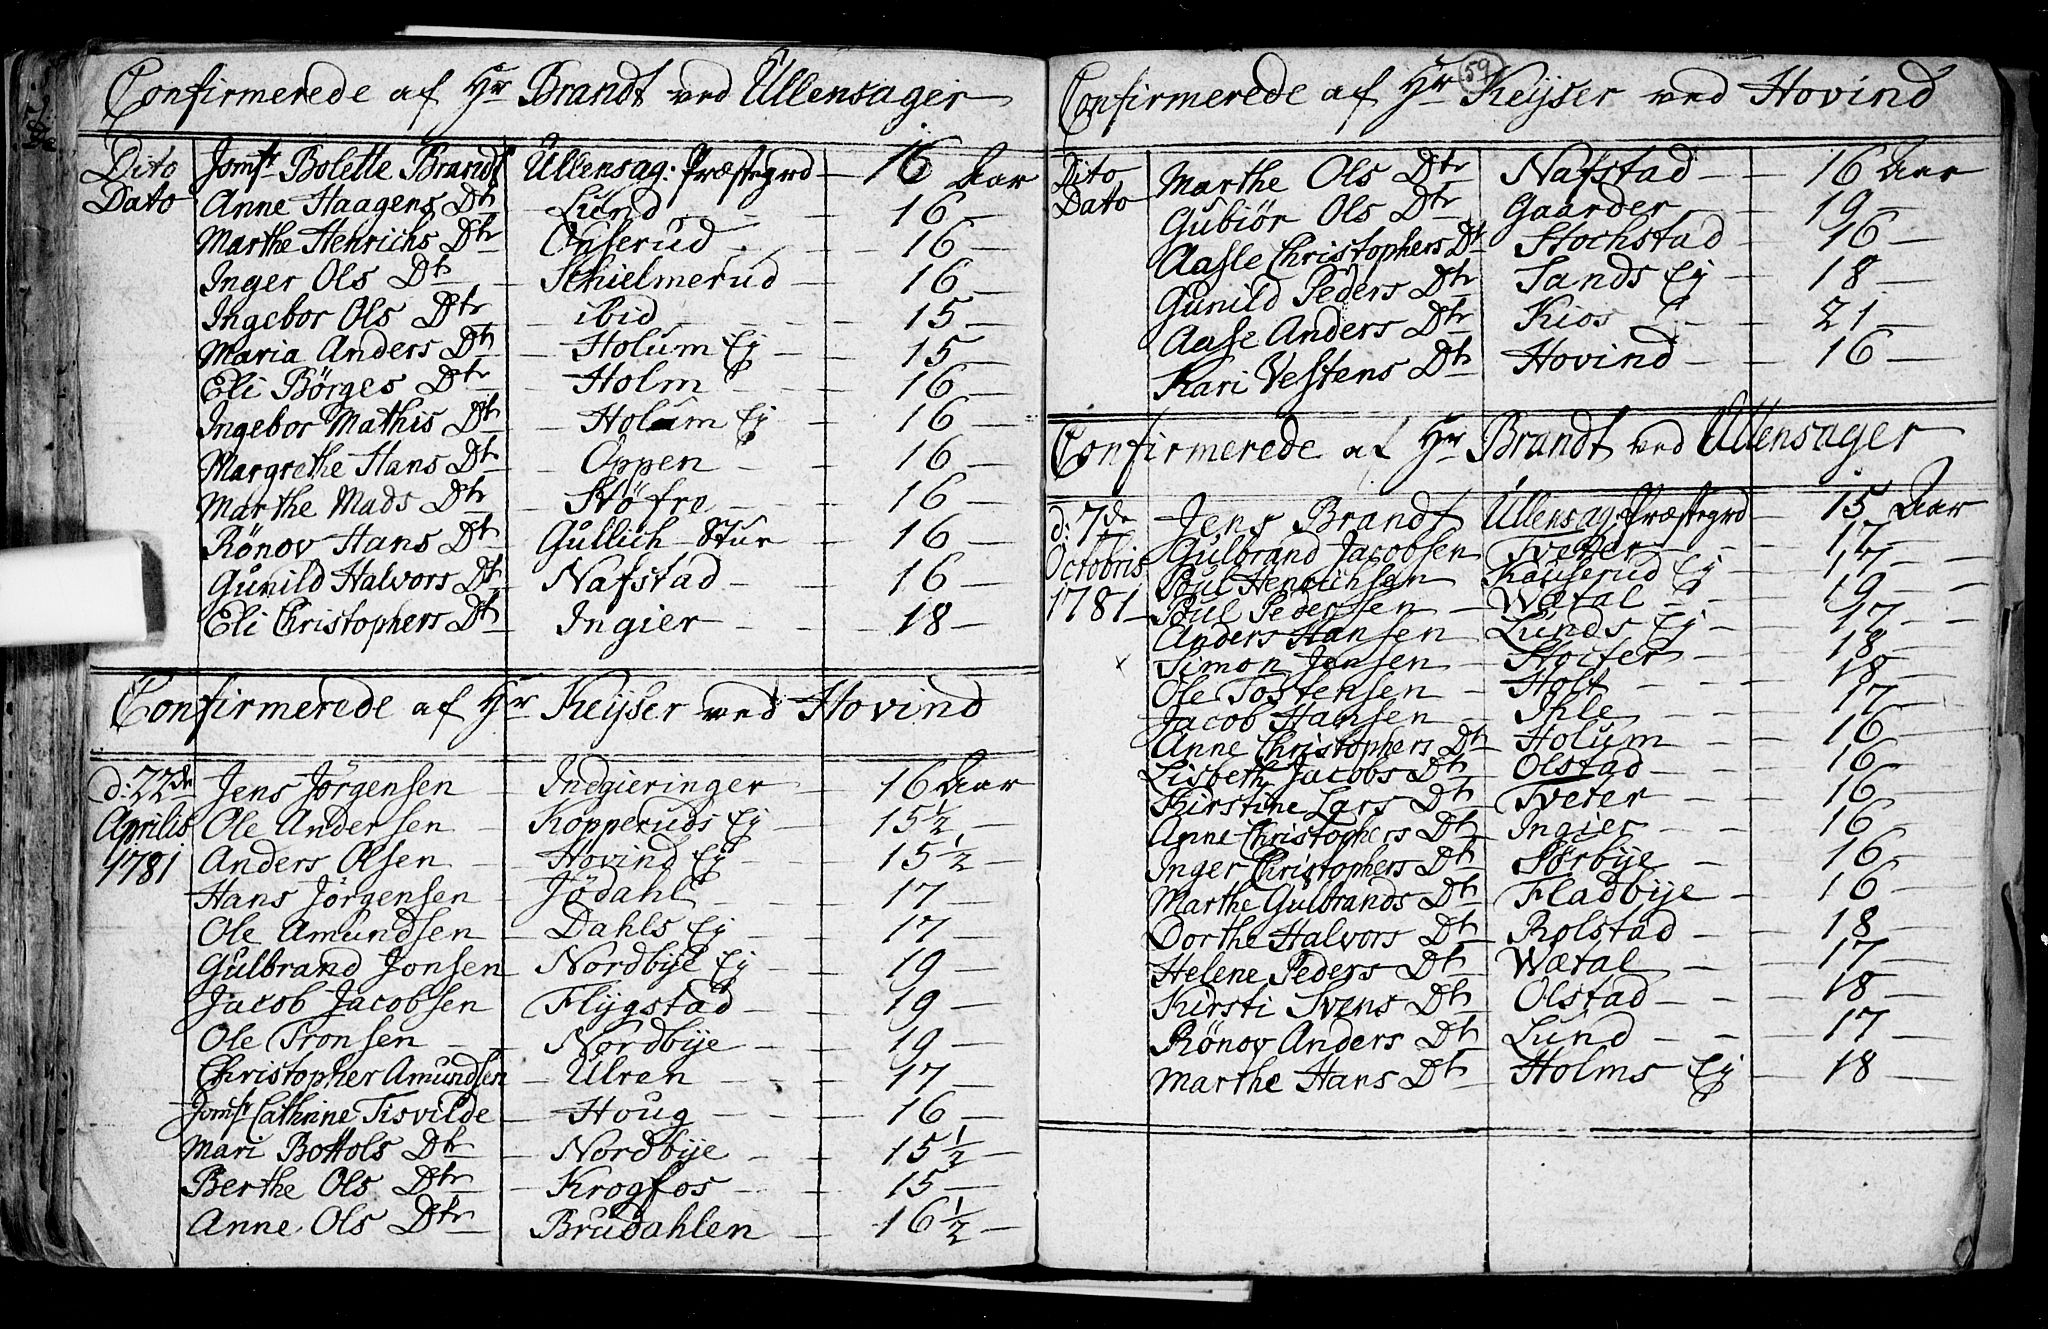 Confirmerede af Hr Brandt ved Ullensager
Dito Jomfr Bolette Brandt Ullensag: Præstegrd 16 Aar
Dato Anne Haagens Dtr Lund 16
Marthe Henrichs Dtr 16
Inger Ols Dtr Schielmerud 16
Ingebor Ols Dtr ibid 15
Maria Anders Dtr Holum Ej 15
Eli Börges Dtr Holm 16
Ingebor Mathis Dtr Holum Ej 16
Margrethe Hans Dtr Oppen 16
Marthe Mads Dtr Stöfre 16
Rönov Hans Dtr Gullich-Stur 16
Gunild Halvors Dtr Nafstad 16
Eli Christophers Dtr Ingier 18
Confirmerede af Hr Keyser ved Hovind
d: 22de Jens Jörgensen Indgieringer 16 Aar
Aprilis Ole Andersen Kopperuds Ej 15 1/2
1781 Anders Olsen Hovind Ej 15 1/2
Hans Jörgensen Jödahl 17
Ole Amundsen Dahls Ej 17
Gulbrand Jonsen Nordbye Ej 19
Jacob Jacobsen Flygstad 19
Ole Tronsen Nordbye 19
Christopher Amundsen Ulren 17
Jomfr Cathrine Tisvilde Houg 16
Mari Bottols Dtr Nordbye 15 1/2
Berthe Ols Dtr Krogfos 15
Anne Ols Dtr Brudahlen 16 1/2
59
Confirmerede af Hr Keyser ved Hovind
Dito Marthe Ols Dtr Nafstad 16 Aar
Dato Gubiör Ols Dtr Gaarder 19
Aasle Christophers Dtr Stochstad 16
Gunild Peders Dtr Sands Ej 18
Aase Anders Dtr Kios 21
Kari Vestens Dtr Hovind 16
Confirmerede af Hr Brandt ved Ullensager
d: 7de Jens Brandt Ullensag: Præstegrd 15 Aar
Octobris Gulbrand Jacobsen Tveter 17
Poul Henrichsen Kauserud Ej 17
1781 Poul Pedersen Wætal 19
Anders Hansen Lunds Ej 17
x Simon Jensen 18
Ole Tostensen Holt 18
Jacob Hansen Ihle 17
Anne Christophers Dtr Holum 16
Lisbeth Jacobs Dtr Olstad 16
Kirstine Lars Dtr Tveter 16
Anne Christophers Dtr Ingier 16
Inger Christophers Dtr Sörbye 16
Marthe Gulbrands Dtr Fladbye 16
Dorthe Halvors Dtr Rolstad 18
Helene Peders Dtr Wætal 17
Kirsti Svens Dtr Olstad 18
Rönov Anders Dtr Lund 17
Marthe Hans Dtr Holms Ej 18